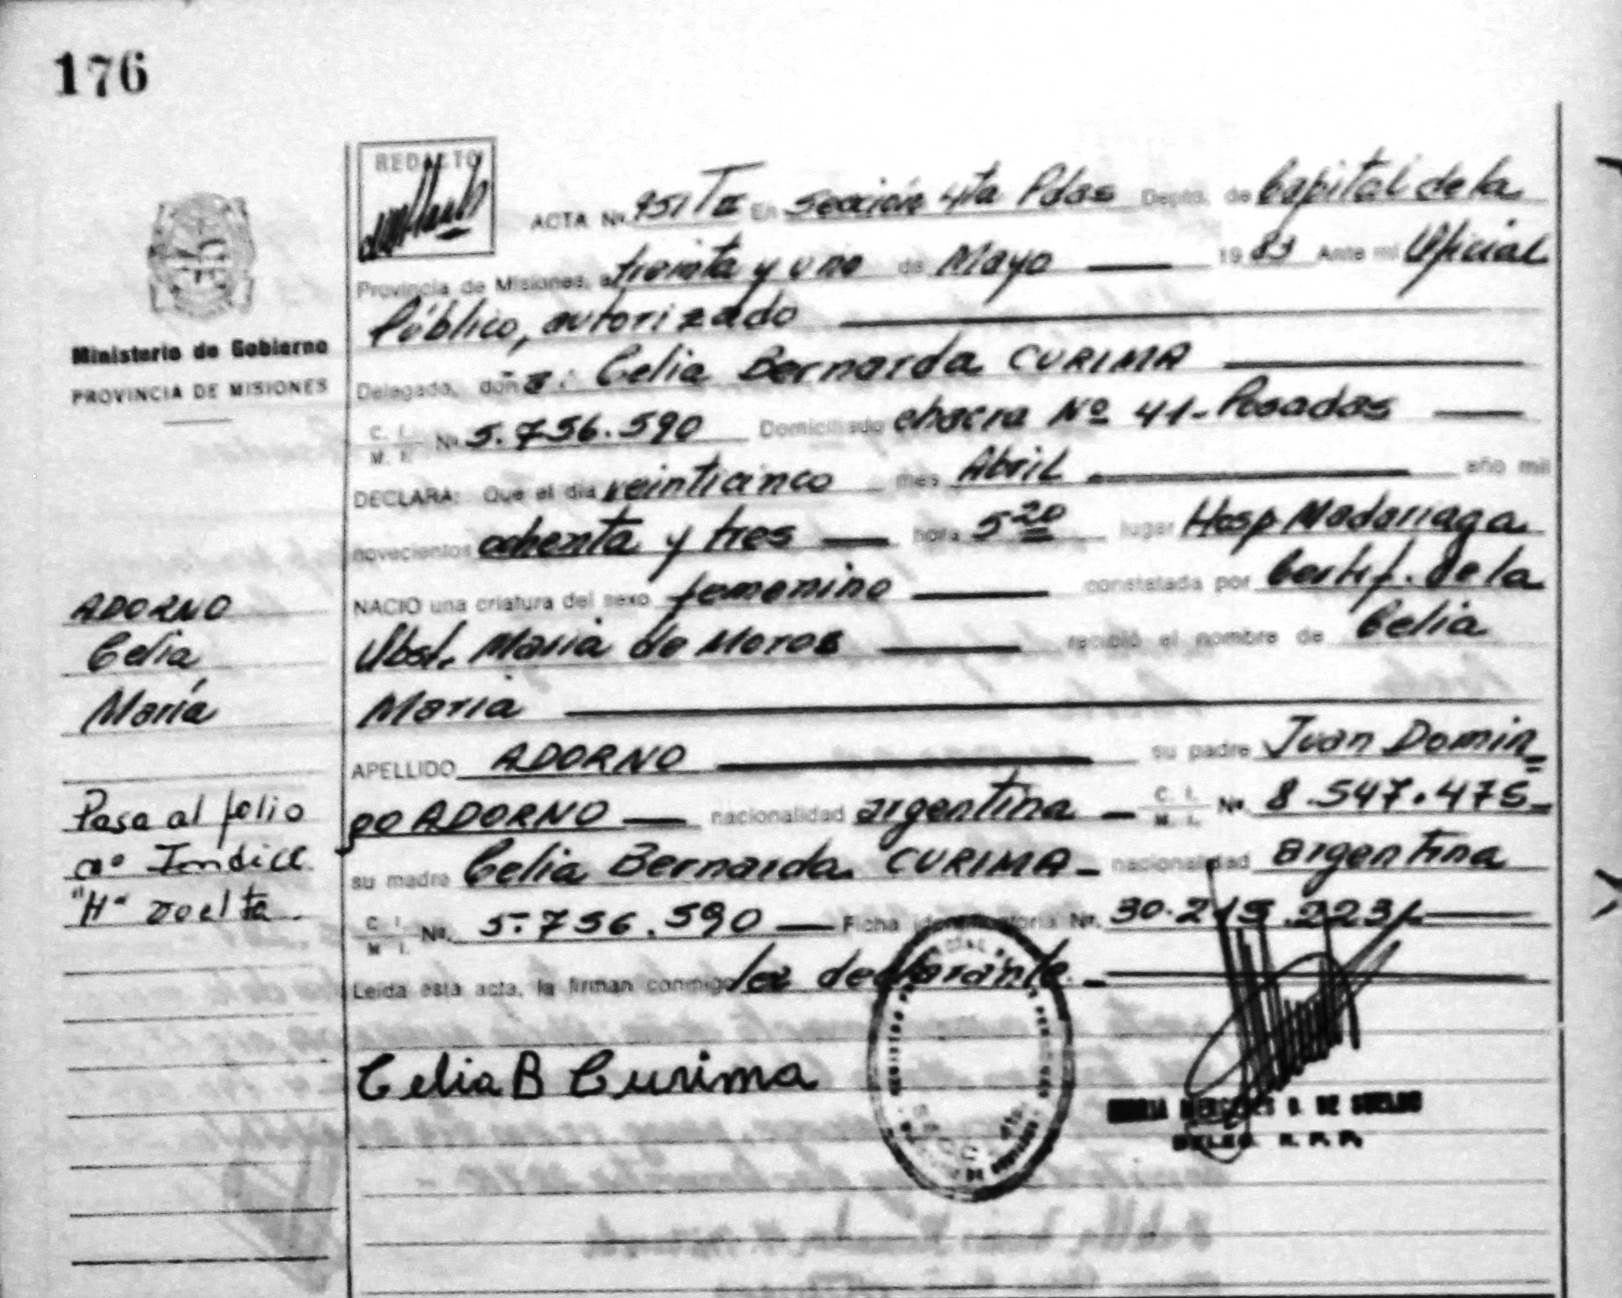 176
REDACTO
ACTA Nº 951 T II En Sección 4ta Pdas Depto. de Capital de la
Provincia de Misiones, a treinta y uno de Mayo 1983 Ante mi Oficial
Público, autorizado
Ministerio de Gobierno
PROVINCIA DE MISIONES
Delegado, doña: Celia Bernarda CURIMA
C. I. M. I. Nº 5.756.590 Domiciliado chacra Nº 41-Posadas
DECLARA: Que el día veinticinco mes Abril año mil
novecientos ochenta y tres hora 5 20 lugar Hosp Madariaga
NACIO una criatura del sexo femenino constatada por Certif. de la
Obst. Maria de Moros recibió el nombre de Celia
Maria
ADORNO
Celia
María
APELLIDO ADORNO su padre Juan Domin=
go ADORNO nacionalidad argentina C. I. M. I. Nº 8.547.475
Pasa al folio
nº Indice
"H" vuelta.
su madre Celia Bernarda CURIMA nacionalidad argentina
C. I. M. I. Nº 5.756.590 Ficha identificatoria Nº 30.215.223/
Leída esta acta, la firman conmigo la declarante.
Celia B Curima
MERCEDES DE
DELEG. R. P. P.